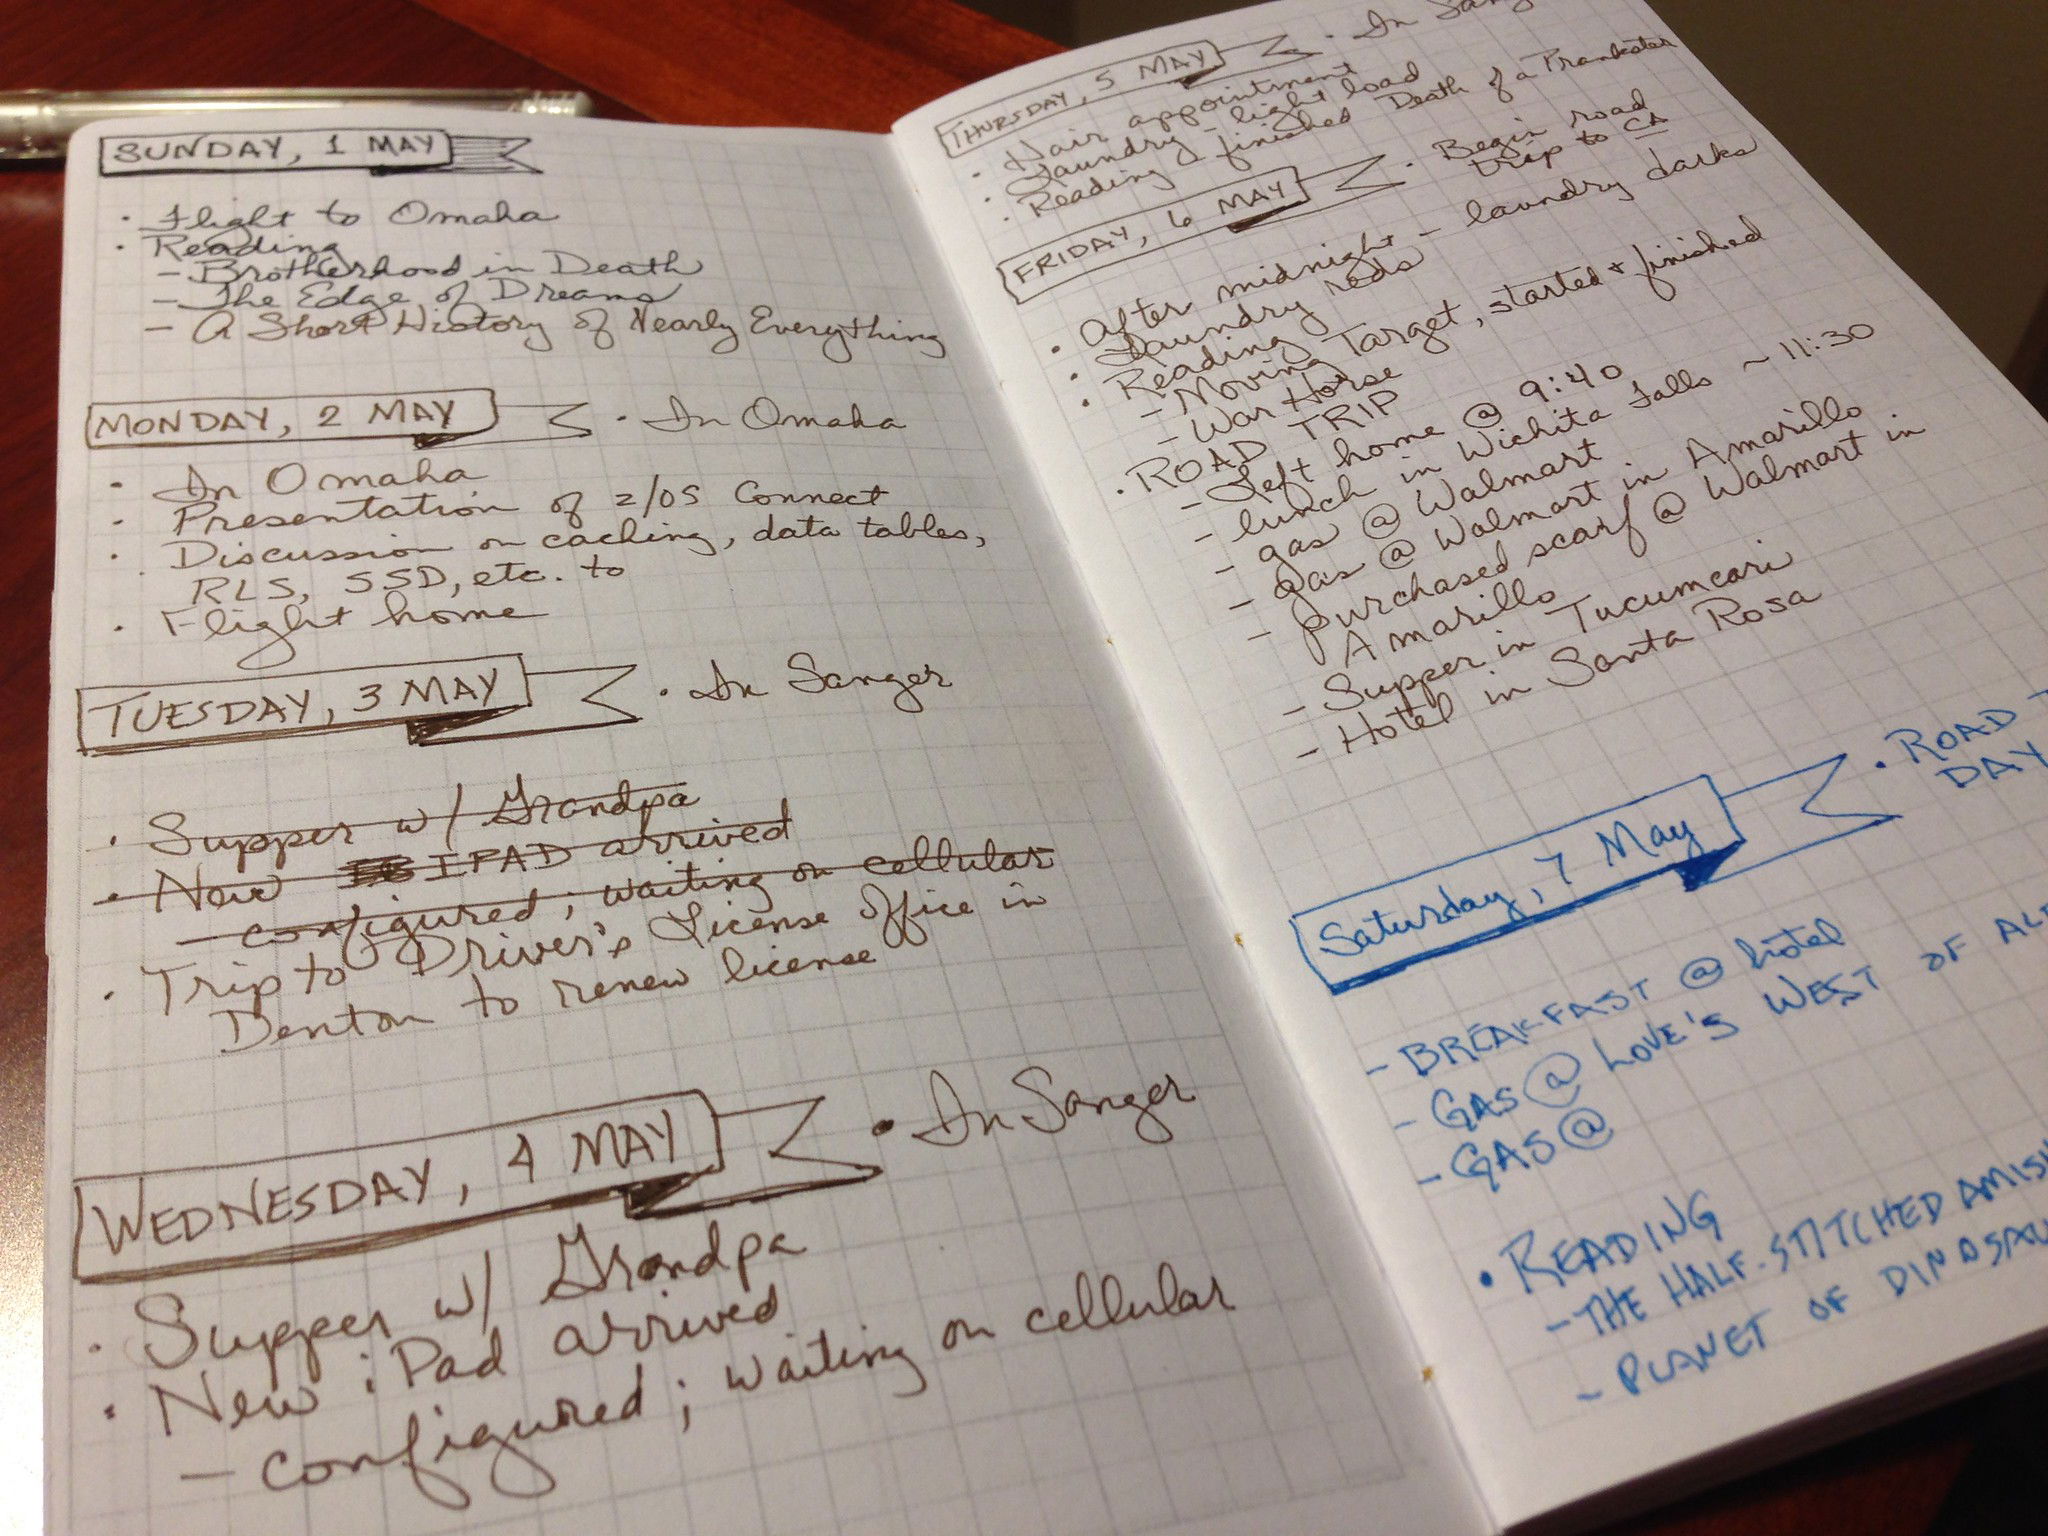 SUNDAY, 1 MAY
• Flight to Omaha
• Reading
- Brotherhood in Death
- The Edge of Dreams
- A Short History of Nearly Everything
MONDAY, 2 MAY • In Omaha
• In Omaha
• Presentation of z/OS Connect
• Discussion on caching, data tables,
RLS, SSD, etc. to
• Flight home
TUESDAY, 3 MAY • In Sanger
• Supper w/ Grandpa
• New IPAD arrived
- configured; waiting on cellular
• Trip to Driver's License Office in
Denton to renew license
WEDNESDAY, 4 MAY • In Sanger
• Supper w/ Grandpa
• New iPad arrived
- configured; waiting on cellular
THURSDAY, 5 MAY • In Sang
• Hair appointment
• Laundry - light load
• Reading - finished Death of a Prankster
FRIDAY, 6 MAY • Begin road
trip to CA
• After midnight - laundry darks
• Laundry reds
• Reading
- Moving Target, started + finished
- War Horse
• ROAD TRIP
- Left home @ 9:40
- lunch in Wichita Falls ~ 11:30
- gas @ Walmart
- gas @ Walmart in Amarillo
- Purchased scarf @ Walmart in
Amarillo
- Supper in Tucumcari
- Hotel in Santa Rosa
Saturday, 7 May • ROAD T
DAY
- BREAKFAST @ hotel
- GAS @ LOVE'S WEST OF AL
- GAS @
• READING
- THE HALF-STITCHED AMISH
- PLANET OF DINOSAU